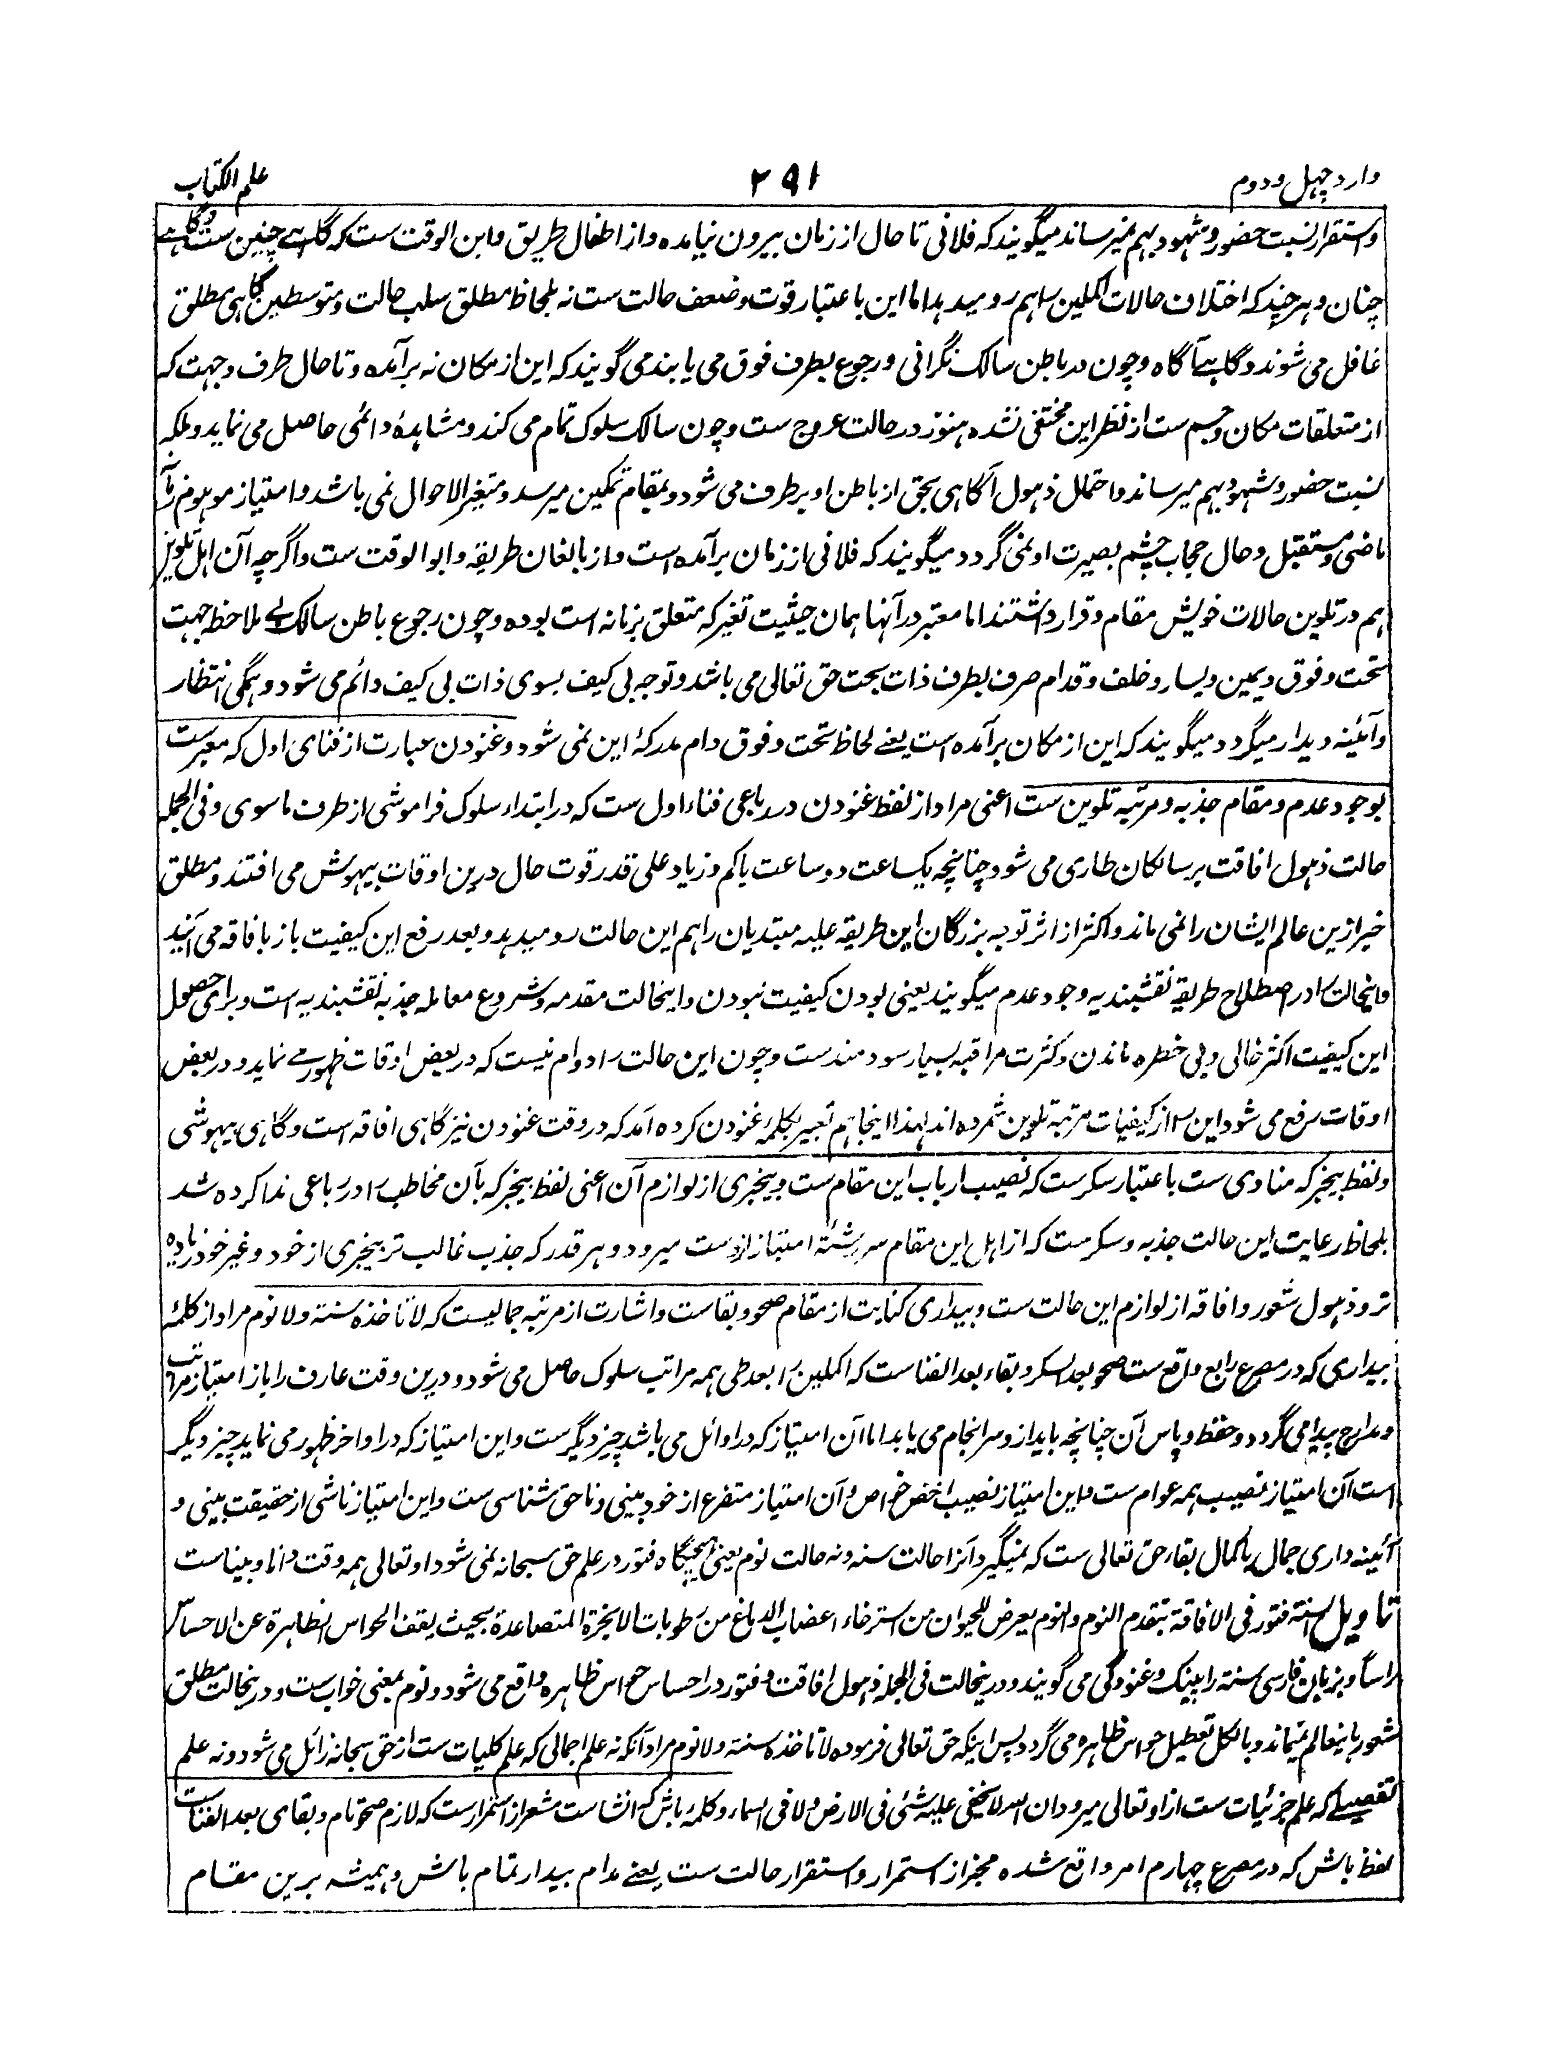 وارد چهل و دوم
۲۹۱
علم الکتاب
و استقرار نسبت حضور و شهود بهم نمیرساند میگویند که فلانی تا حال از زمان بیرون نیامده و از اطفال طریق و ابن الوقت ست که گاہے چنین ست و گاہے
چنان و هرچند که اختلاف حالات اکملین را هم رو میدهد اما این باعتبار قوت و ضعف حالت ست نه بلحاظ مطلق سلب حالت و متوسطین گاهی مطلق
غافل می شوند و گاہے آگاه و چون در باطن سالک نگرانی و رجوع بطرف فوق می یابند می گویند که این از مکان نه برآمده و تا حال طرف و جهت که
از متعلقات مکان و جسم ست از نظر این مختفی نشده هنوز در حالت عروج ست و چون سالک سلوک تمام می کند و مشاهدهٔ دائمی حاصل می نماید و ملکه
نسبت حضور و شهود بهم میرساند و احتمال ذهول آگاهی بحق از باطن او برطرف می شود و بمقام تمکین میرسد و متغیر الاحوال نمی باشد و امتیاز موهوم زمان
ماضی و مستقبل و حال حجاب چشم بصیرت او نمی گردد میگویند که فلانی از زمان برآمده است و از بالغان طریقه و ابو الوقت ست و اگرچه آن اهل تلوین
هم در تلوین حالات خویش مقام و قرار داشتند اما معتبر در آنها همان حیثیت تغیر که متعلق بزمانه است بوده و چون رجوع باطن سالک بے ملاحظه جهت
تحت و فوق و یمین و یسار و خلف و قدام صرف بطرف ذات بحت حق تعالی می باشد و توجه بی کیف بسوی ذات بی کیف دائم می شود و همگی انتظار
و آئینه دیدار میگردد میگویند که این از مکان برآمده است یعنے لحاظ تحت و فوق دام مدرکهٔ این نمی شود و غنودن عبارت از فنای اول که معبر ست
بوجود عدم و مقام جذبه و مرتبه تلوین ست اعنی مراد از لفظ غنودن در رباعی فناء اول ست که در ابتداء سلوک فراموشی از طرف ماسوی و فی الجمله
حالت ذهول افاقت بر سالکان طاری می شود چنانچه یکساعت دو ساعت یا کم و زیاد علی قدر قوت حال درین اوقات بیهوش می افتند و مطلق
خبر ازین عالم ایشان را نمی ماند و اکثر از اثر توجه بزرگان این طریقه علیه مبتدیان را هم این حالت رو میدهد و بعد رفع این کیفیت باز بافاقه می آیند
و اینحالت را در اصطلاح طریقه نقشبندیه وجود عدم میگویند یعنی بودن کیفیت نبودن و اینحالت مقدمه و شروع معامله جذبه نقشبندیه است و برای حصول
این کیفیت اکثر خالی و بی خطره ماندن و کثرت مراقبه بسیار سودمند ست و چون این حالت را دوام نیست که در بعض اوقات ظهور مے نماید و در بعض
اوقات رفع می شود این را از کیفیات مرتبه تلوین شمرده اند لهذا اینجا هم تعبیر بکلمهٔ غنودن کرده آمد که در وقت غنودن نیز گاهی افاقه است و گاهی بیهوشی
و لفظ بیخبر که منادی ست باعتبار سکر ست که نصیب ارباب این مقام ست و بیخبری از لوازم آن اعنی لفظ بیخبر که بآن مخاطب را در رباعی ندا کرده شد
بلحاظ رعایت این حالت جذبه و سکر ست که از اهل این مقام سررشتهٔ امتیاز از دست میرود و هر قدر که جذب غالب تر بیخبری از خود و غیر خود زیاده
تر و ذهول شعور و افاقه از لوازم این حالت ست و بیداری کنایت از مقام صحو و بقاست و اشارت از مرتبه جمالیست که لا تاخذه سنة و لا نوم مراد از کلمهٔ
بیداری که در مصرع رابع واقع ست صحو بعد السکر و بقاء بعد الفناست که اکملین را بعد طی همه مراتب سلوک حاصل می شود و درین وقت عارف را باز امتیاز مراتب
و مدارج پیدا می گردد و حفظ و پاس آن چنانچه باید ازو سرانجام می یابد اما آن امتیاز که در اوائل می باشد چیز دیگر ست و این امتیاز که در اواخر ظهور می نماید چیز دیگر
است آن امتیاز نصیب همه عوام ست و این امتیاز نصیب اخص خواص و آن امتیاز متفرع از خودبینی و ناحق شناسی ست و این امتیاز ناشی از حقیقت بینی و
آئینه داری جمال باکمال بقاء حق تعالی ست که نمیگیرد آنرا حالت سنه و نه حالت نوم یعنی هیچگاه فتور در علم حق سبحانه نمی شود او تعالی همه وقت دانا و بینا ست
تاویل السنة فتور فی الافاقة یتقدم النوم و النوم یعرض للحیوان من استرخاء اعضاب الدماغ من رطوبات الابخرة المتصاعدة بحیث یقف الحواس الظاهرة عن الاحساس
راسا و بزبان فارسی سنه را پینک و غنودگی می گویند و درینحالت فی الجمله ذهول افاقت و فتور در احساس حواس ظاهره واقع می شود و نوم بمعنی خواب ست و درینحالت مطلق
شعور باینعالم نمیماند و بالکل تعطیل حواس ظاهره می گردد پس اینکه حق تعالی فرموده لا تاخذه سنة و لا نوم مراد آنکه نه علم اجمالی که علم کلیات ست از حق سبحانه زائل می شود و نه علم
تفصیلے که علم جزئیات ست از او تعالی میرود ان الله لا یخفی علیه شئ فی الارض و لا فی السماء و کلمهٔ باش که انشا ست مشعر از استمرار ست که لازم صحو تام و بقای بعد الفناست
لفظ باش که در مصرع چهارم امر واقع شده مخبر از استمرار و استقرار حالت ست یعنے مدام بیدار تمام باش و همیشه برین مقام